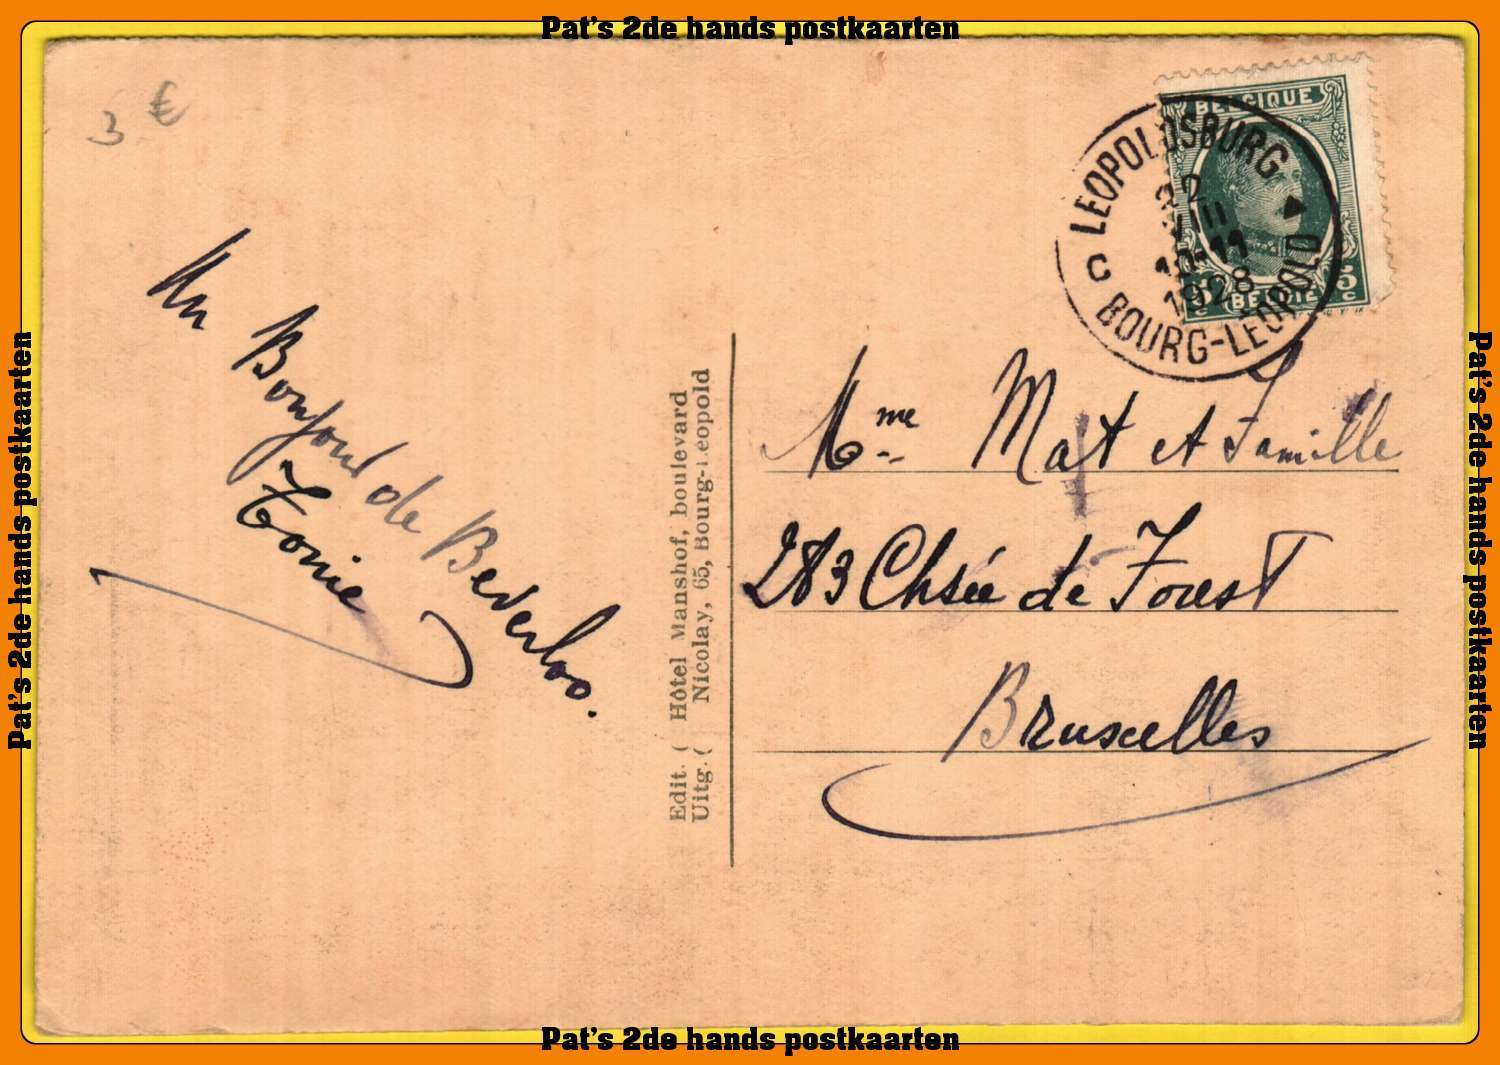 Pat's 2de hands postkaarten
3 €
BELGIQUE
5 c BELGIË 5 c
LEOPOLDSBURG
22
VIII
10-11
1928
C BOURG-LEOPOLD
Un Bonjour de Beverloo.
Tonie
Edit. ( Hôtel Manshof, boulevard
Uitg. ( Nicolay, 65, Bourg-Leopold
Mme Mat et Famille
283 Chsée de Forest
Bruxelles
Pat's 2de hands postkaarten
Pat's 2de hands postkaarten
Pat's 2de hands postkaarten